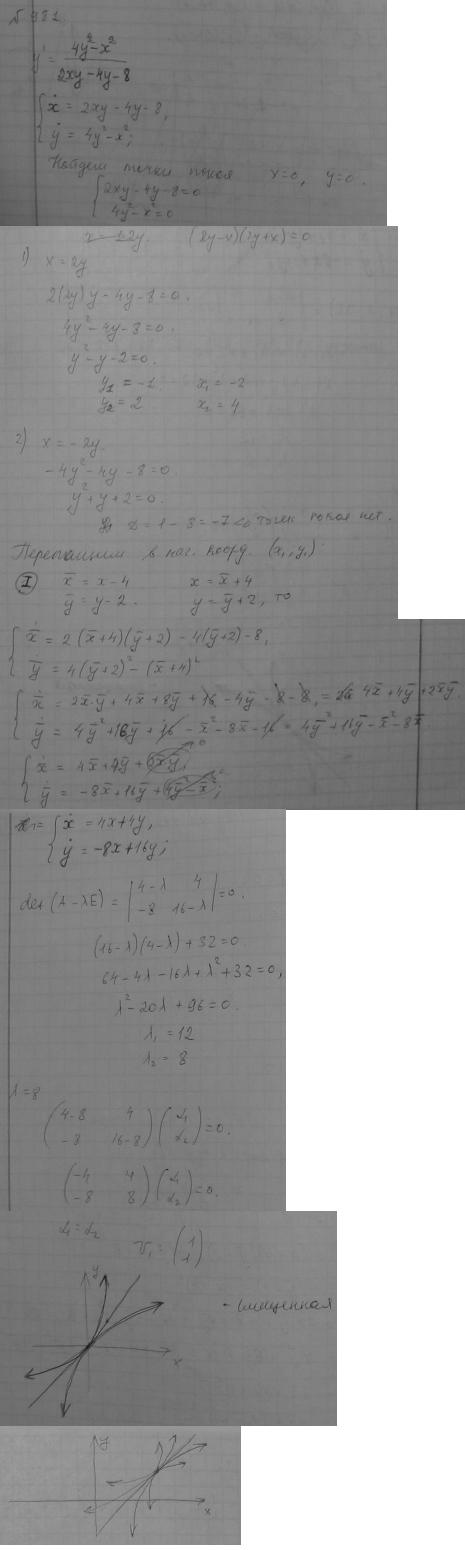 № 981
y' = (4y² - x²) / (2xy - 4y - 8)
{ ẋ = 2xy - 4y - 8,
ẏ = 4y² - x²;
Найдем точки покоя x=0, y=0.
{ 2xy - 4y - 8 = 0
4y² - x² = 0
x = ±2y. (2y-x)(2y+x) = 0
1) x = 2y
2(2y)y - 4y - 8 = 0.
4y² - 4y - 8 = 0.
y² - y - 2 = 0.
y₁ = -1 x₁ = -2
y₂ = 2 x₂ = 4
2) x = -2y.
-4y² - 4y - 8 = 0.
y² + y + 2 = 0.
D = 1 - 8 = -7 < 0 точек покоя нет.
Перепишем в коорд. (x₁, y₁):
I x̄ = x - 4 x = x̄ + 4
ȳ = y - 2. y = ȳ + 2, то
{ ẋ̄ = 2(x̄+4)(ȳ+2) - 4(ȳ+2) - 8,
ẏ̄ = 4(ȳ+2)² - (x̄+4)²
{ ẋ̄ = 2x̄ȳ + 4x̄ + 8ȳ + 16 - 4ȳ - 8 - 8, = 4x̄ + 4ȳ + 2x̄ȳ.
ẏ̄ = 4ȳ² + 16ȳ + 16 - x̄² - 8x̄ - 16 = 4ȳ² + 16ȳ - x̄² - 8x̄
{ ẋ = 4x̄ + 4ȳ + 2x̄y; 0
ẏ = -8x̄ + 16ȳ + 4ȳ² - x̄²; 0
{ ẋ = 4x + 4y,
ẏ = -8x + 16y;
det (A - λE) = | 4-λ 4 | = 0.
| -8 16-λ |
(16-λ)(4-λ) + 32 = 0
64 - 4λ - 16λ + λ² + 32 = 0,
λ² - 20λ + 96 = 0.
λ₁ = 12
λ₂ = 8
λ = 8
( 4-8 4 ) ( α₁ ) = 0.
( -8 16-8 ) ( α₂ )
( -4 4 ) ( α₁ ) = 0.
( -8 8 ) ( α₂ )
α₁ = α₂ V₁ = ( 1 )
( 1 )
y
- смещенная
x
y
x